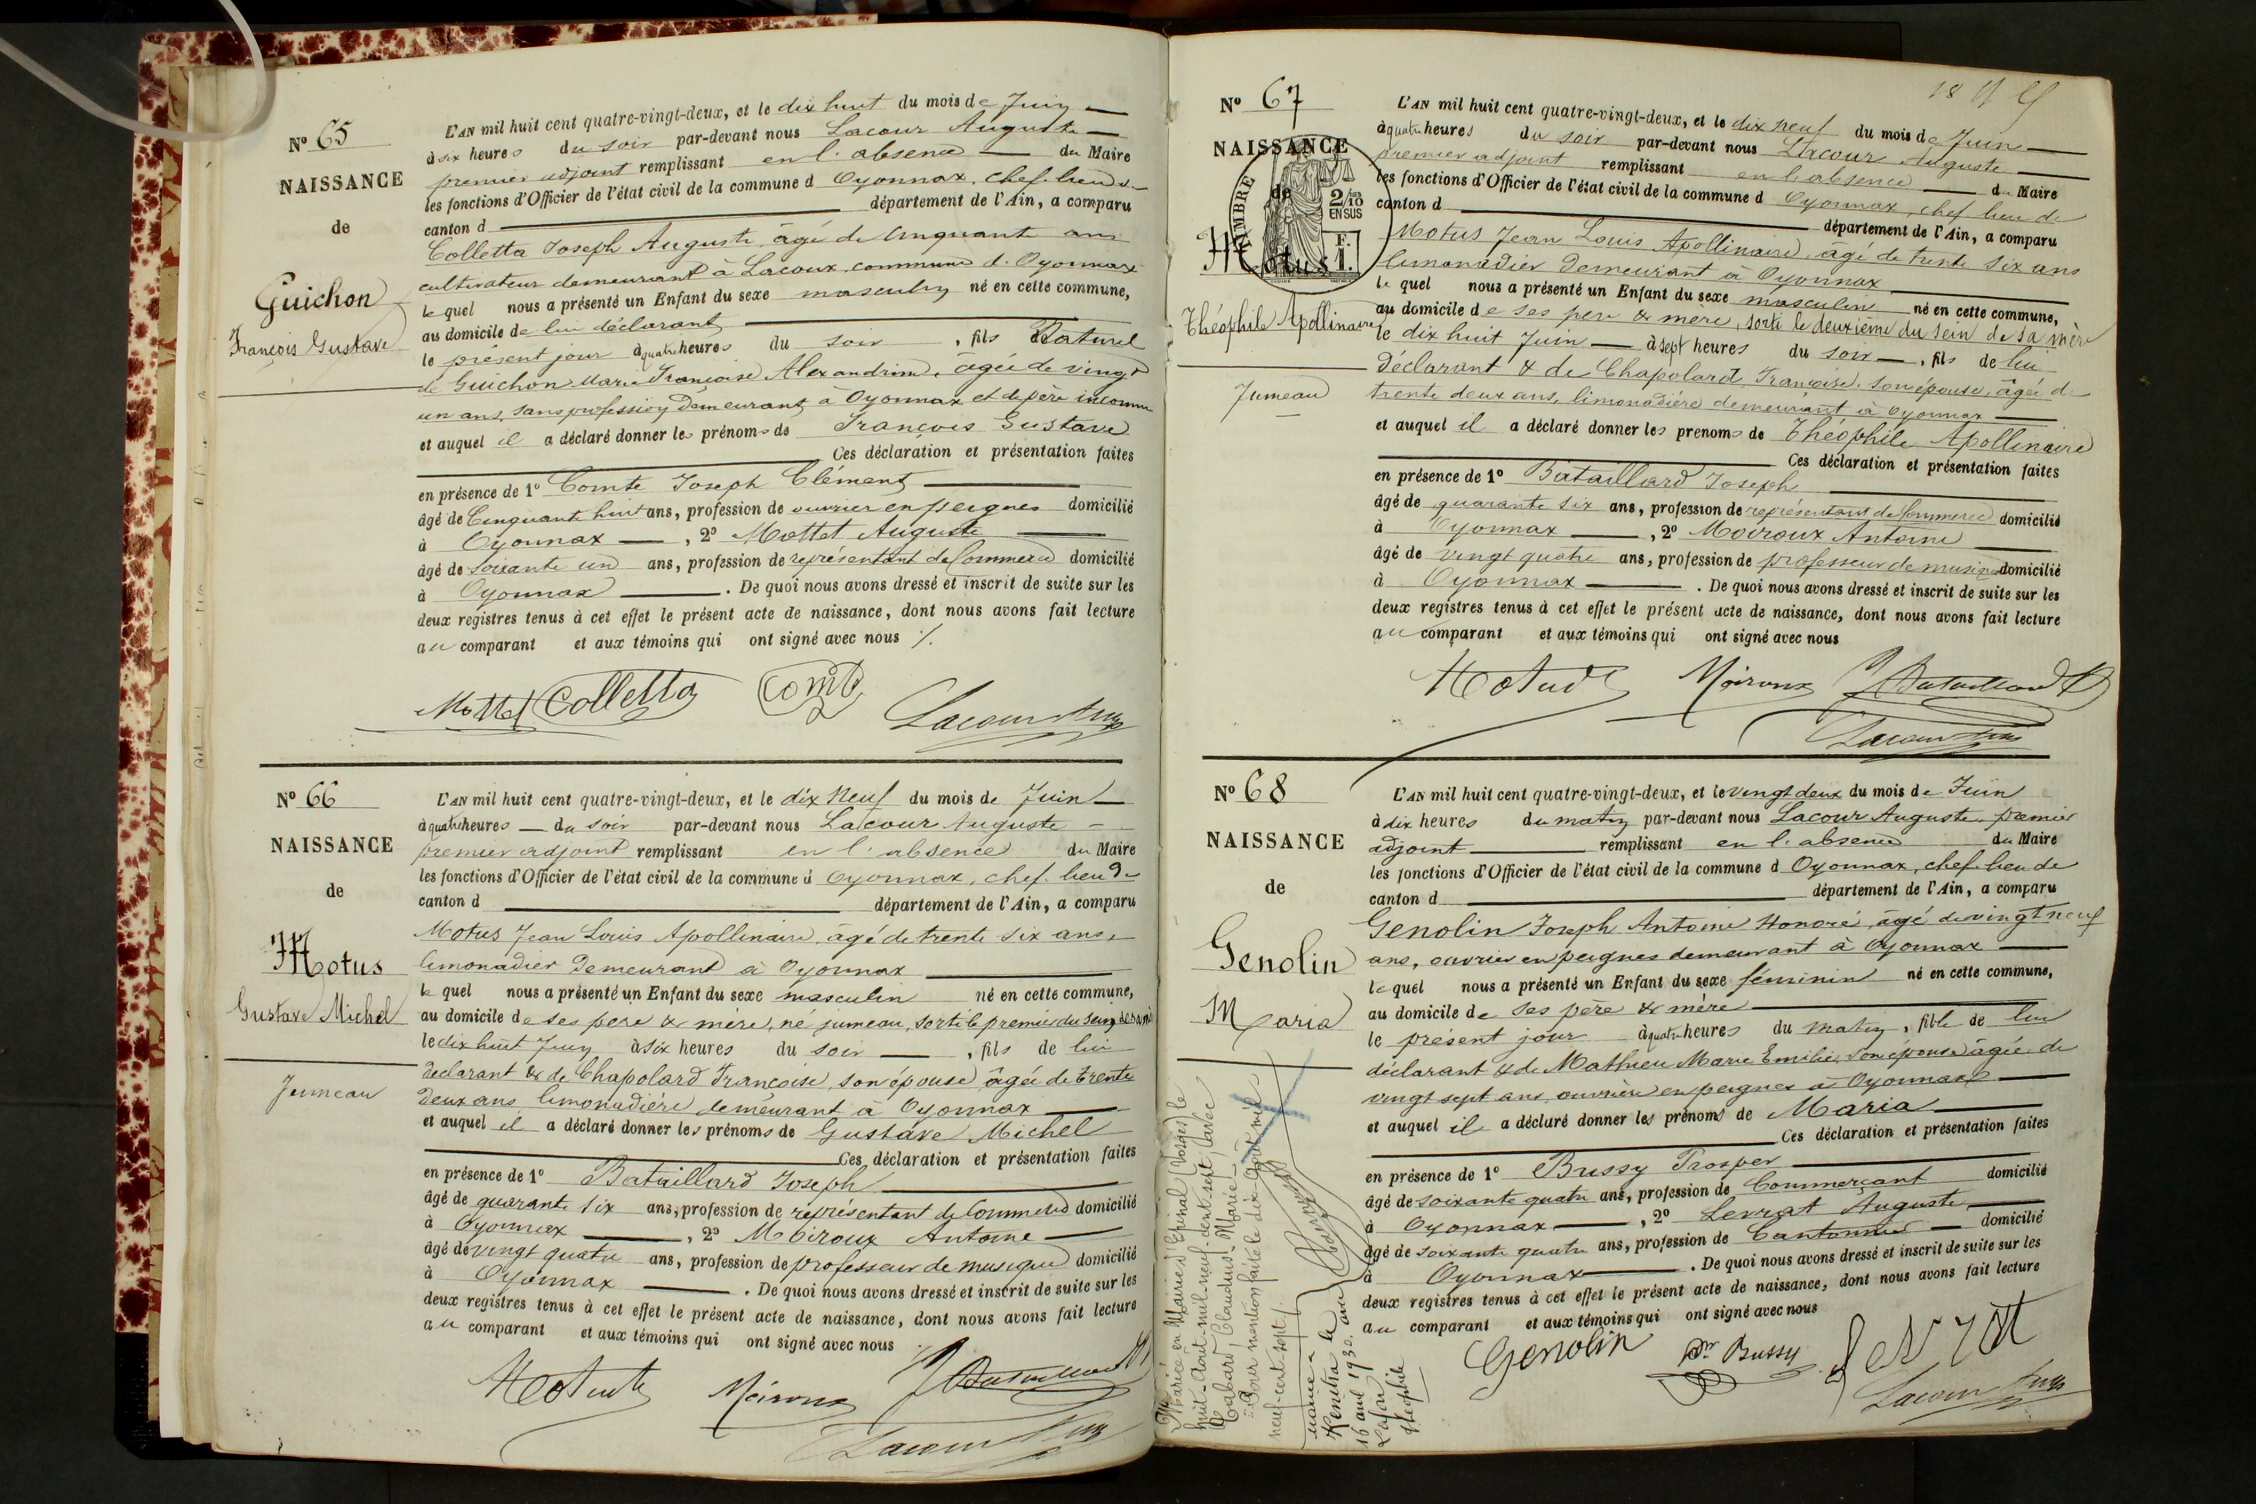 Nº 65
NAISSANCE
de
Guichon
François Gustave
L'AN mil huit cent quatre-vingt-deux, et le dix huit du mois de Juin
à six heures du soir par-devant nous Lacour Auguste
premier adjoint remplissant en l'absence du Maire
les fonctions d'Officier de l'état civil de la commune d Oyonnax, chef-lieu de
canton d département de l'Ain, a comparu
Colletta Joseph Auguste, âgé de Cinquante ans
cultivateur demeurant à Lacoux commune d'Oyonnax
le quel nous a présenté un Enfant du sexe masculin né en cette commune,
au domicile de lui déclarant
le présent jour à quatre heures du soir, fils Naturel
de Guichon Marie Françoise Alexandrine, âgée de vingt
un ans, sans profession, demeurant à Oyonnax et de père inconnu
et auquel il a déclaré donner les prénoms de François Gustave
Ces déclaration et présentation faites
en présence de 1º Comte Joseph Clément
âgé de Cinquante huit ans, profession de ouvrier en peignes domicilié
à Oyonnax, 2º Mottet Auguste
âgé de soixante un ans, profession de représentant de Commerce domicilié
à Oyonnax. De quoi nous avons dressé et inscrit de suite sur les
deux registres tenus à cet effet le présent acte de naissance, dont nous avons fait lecture
au comparant et aux témoins qui ont signé avec nous ⁒
Mottet Colletta Comte
Lacour Aug
Nº 66
NAISSANCE
de
Motus
Gustave Michel
Jumeau
L'AN mil huit cent quatre-vingt-deux, et le dix neuf du mois de Juin
à quatre heures du soir par-devant nous Lacour Auguste
premier adjoint remplissant en l'absence du Maire
les fonctions d'Officier de l'état civil de la commune d Oyonnax, chef-lieu de
canton d département de l'Ain, a comparu
Motus Jean Louis Apollinaire, âgé de trente six ans,
limonadier demeurant à Oyonnax
le quel nous a présenté un Enfant du sexe masculin né en cette commune,
au domicile de ses père & mère, né jumeau, sorti le premier du sein de sa mère
le dix huit Juin à six heures du soir, fils de lui
déclarant & de Chapolard Françoise, son épouse, âgée de trente
deux ans limonadière demeurant à Oyonnax
et auquel il a déclaré donner les prénoms de Gustave Michel
Ces déclaration et présentation faites
en présence de 1º Bataillard Joseph
âgé de quarante six ans, profession de représentant de Commerce domicilié
à Oyonnax, 2º Moiroux Antoine
âgé de vingt quatre ans, profession de professeur de musique domicilié
à Oyonnax. De quoi nous avons dressé et inscrit de suite sur les
deux registres tenus à cet effet le présent acte de naissance, dont nous avons fait lecture
au comparant et aux témoins qui ont signé avec nous
Motus Moiroux J Bataillard
Lacour Aug
Nº 67
NAISSANCE
de
Motus
Théophile Apollinaire
Jumeau
TIMBRE
2/10
EN SUS
F.
1.
L'AN mil huit cent quatre-vingt-deux, et le dix neuf du mois de Juin
à quatre heures du soir par-devant nous Lacour Auguste
premier adjoint remplissant en l'absence du Maire
les fonctions d'Officier de l'état civil de la commune d Oyonnax, chef-lieu de
canton d département de l'Ain, a comparu
Motus Jean Louis Apollinaire, âgé de trente six ans
limonadier demeurant à Oyonnax
le quel nous a présenté un Enfant du sexe masculin né en cette commune,
au domicile de ses père & mère, sorti le deuxième du sein de sa mère
le dix huit Juin à sept heures du soir, fils de lui
déclarant & de Chapolard Françoise, son épouse, âgée de
trente deux ans, limonadière demeurant à Oyonnax
et auquel il a déclaré donner les prénoms de Théophile Apollinaire
Ces déclaration et présentation faites
en présence de 1º Bataillard Joseph
âgé de quarante six ans, profession de représentant de Commerce domicilié
à Oyonnax, 2º Moiroux Antoine
âgé de vingt quatre ans, profession de professeur de musique domicilié
à Oyonnax. De quoi nous avons dressé et inscrit de suite sur les
deux registres tenus à cet effet le présent acte de naissance, dont nous avons fait lecture
au comparant et aux témoins qui ont signé avec nous
Motus Moiroux J Bataillard
Lacour Aug
Nº 68
NAISSANCE
de
Genolin
Maria
L'AN mil huit cent quatre-vingt-deux, et le vingt deux du mois de Juin
à dix heures du matin par-devant nous Lacour Auguste, premier
adjoint remplissant en l'absence du Maire
les fonctions d'Officier de l'état civil de la commune d Oyonnax, chef-lieu de
canton d département de l'Ain, a comparu
Genolin Joseph Antoine Honoré, âgé de vingt neuf
ans, ouvrier en peignes demeurant à Oyonnax
le quel nous a présenté un Enfant du sexe féminin né en cette commune,
au domicile de ses père & mère
le présent jour à quatre heures du matin, fille de lui
déclarant & de Mathieu Marie Emilie, son épouse âgée de
vingt sept ans, ouvrière en peignes à Oyonnax
et auquel il a déclaré donner les prénoms de Maria
Ces déclaration et présentation faites
en présence de 1º Bussy Prosper
âgé de soixante quatre ans, profession de Commerçant domicilié
à Oyonnax, 2º Levrat Auguste
âgé de soixante quatre ans, profession de Cantonnier domicilié
à Oyonnax. De quoi nous avons dressé et inscrit de suite sur les
deux registres tenus à cet effet le présent acte de naissance, dont nous avons fait lecture
au comparant et aux témoins qui ont signé avec nous
Genolin Pr Bussy
Lacour Aug
Mariée en Mairie d'Epinal Vosges le
huit-Août-mil-neuf-cent sept, avec
Cabaré, Claudius-Marie
Pour mention faite le dix Août mil
neuf-cent sept
mariée à
le
16 avril 1932 avec
Lafon
Théophile